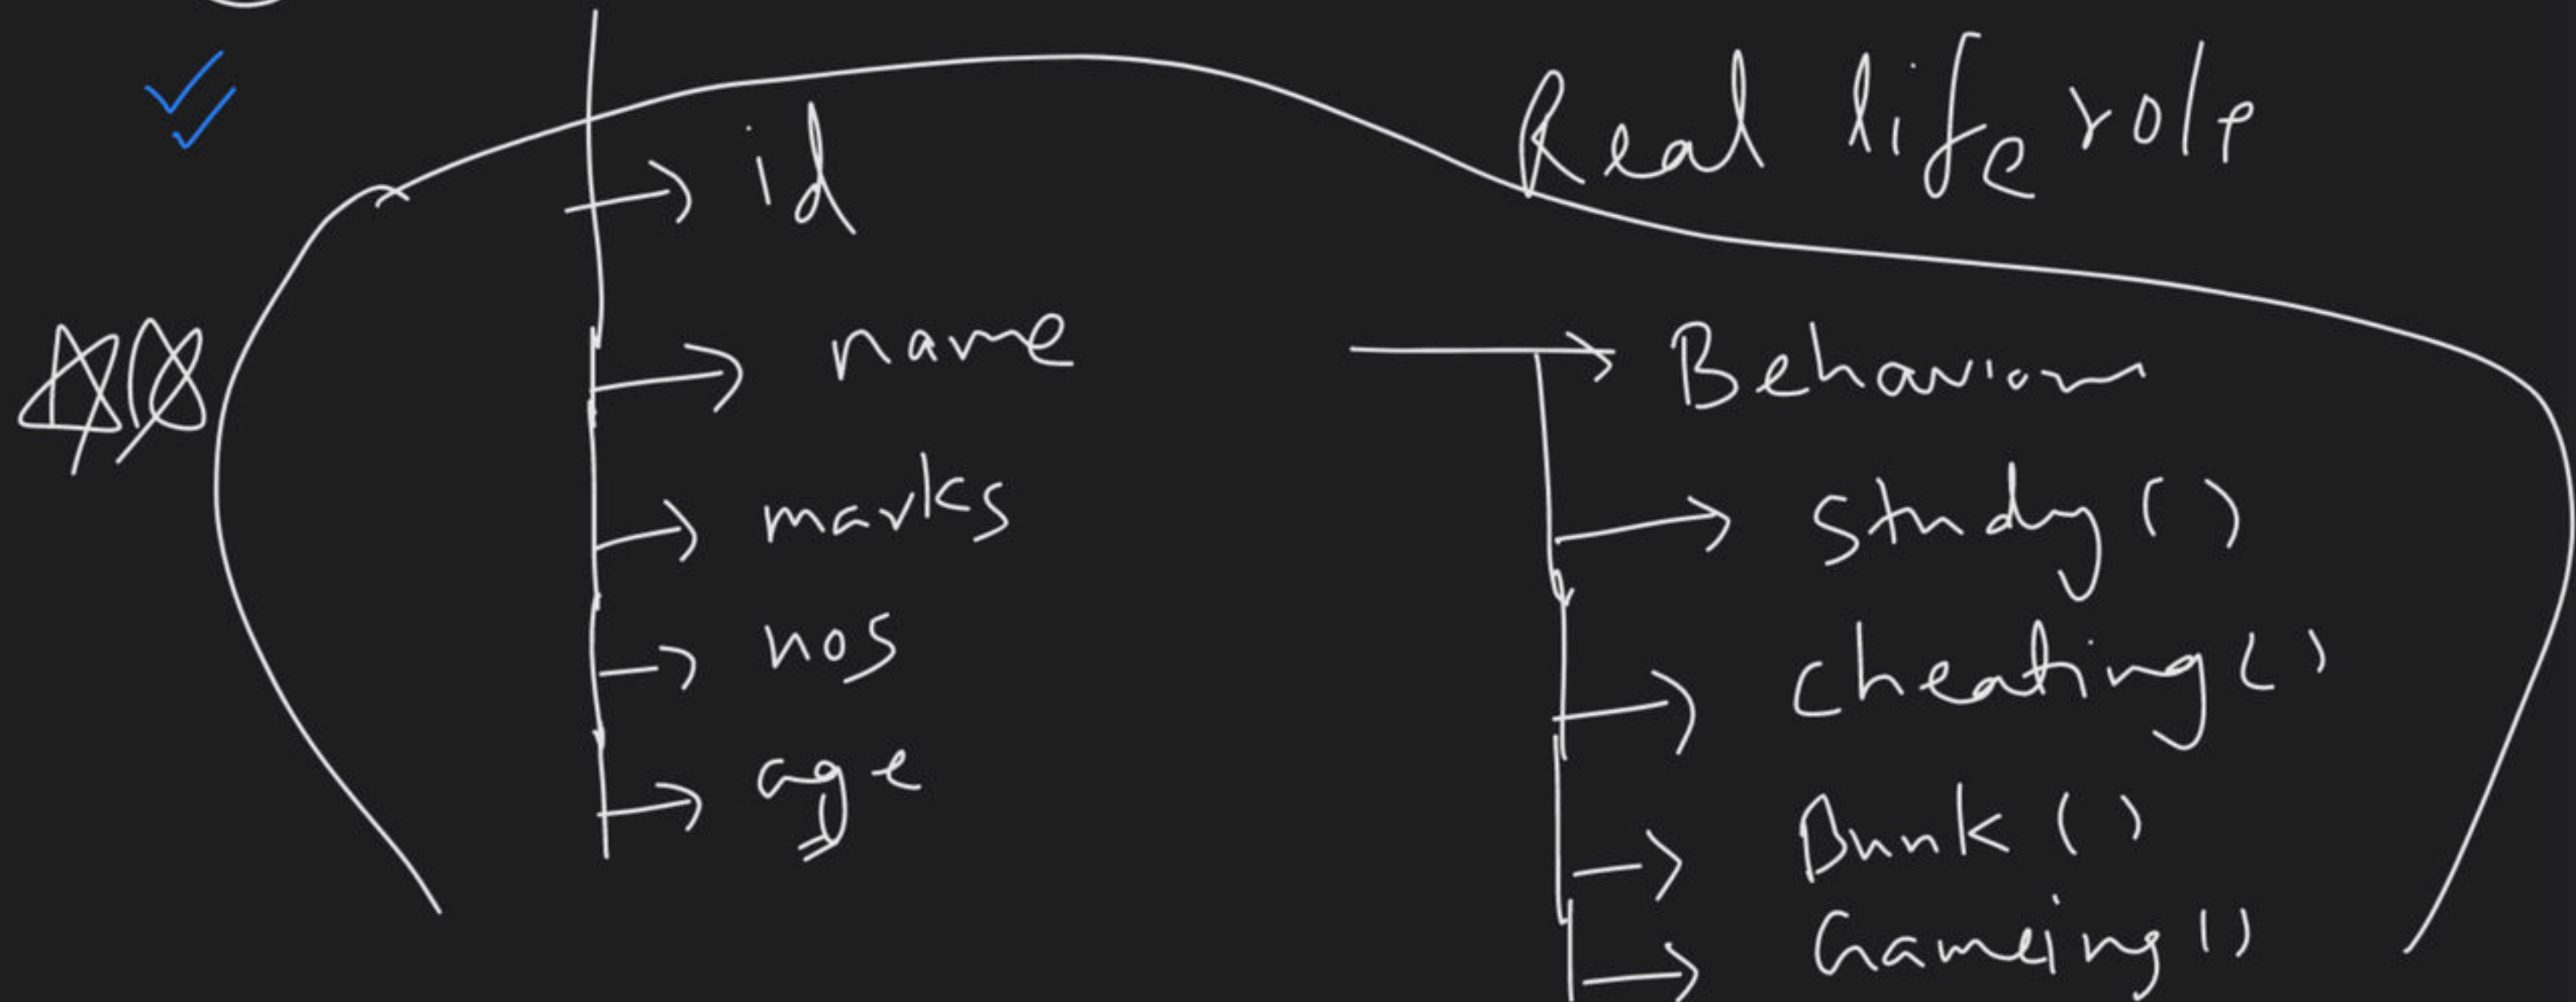 Real life role
id
name
marks
nos
age
Behaviour
Study()
Cheating()
Bunk()
Gameing()